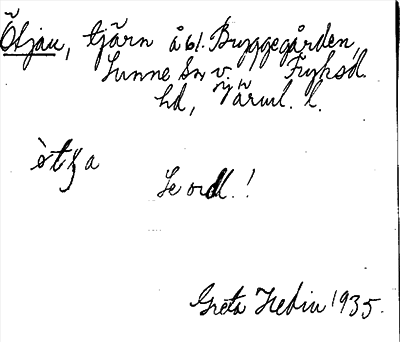 Ötjan, tjärn å bl. Byggegården,
Sunne sn v. Fryksd.
hd, Värml. l.
òtʒa
Se ordl.!
Greta Hedin 1935.